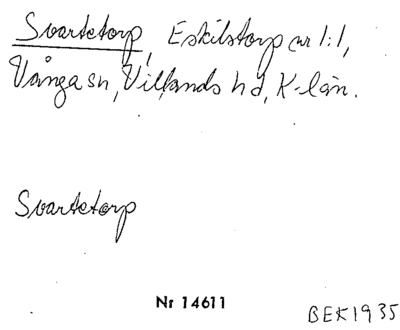 Svartetorp, Eskilstorp nr 1:1,
Vånga sn, Villands hd, K-län.
Svartetorp
Nr 14611
BEK1935